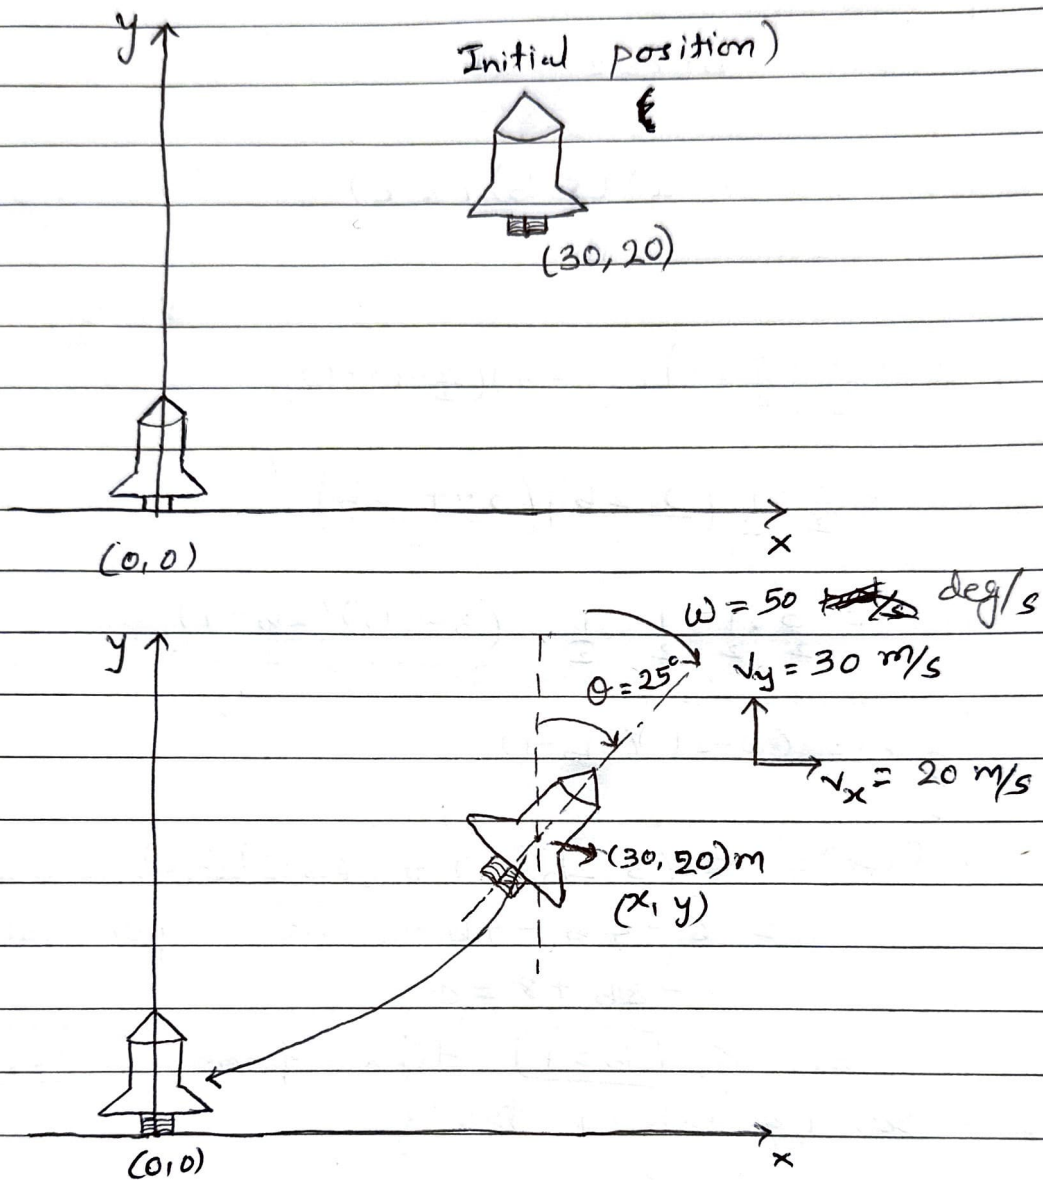 y
Initial position)
(30, 20)
x
(0, 0)
ω = 50 deg/s
y
θ = 25°
Vy = 30 m/s
Vx = 20 m/s
(30, 20)m
(x, y)
(0, 0)
x